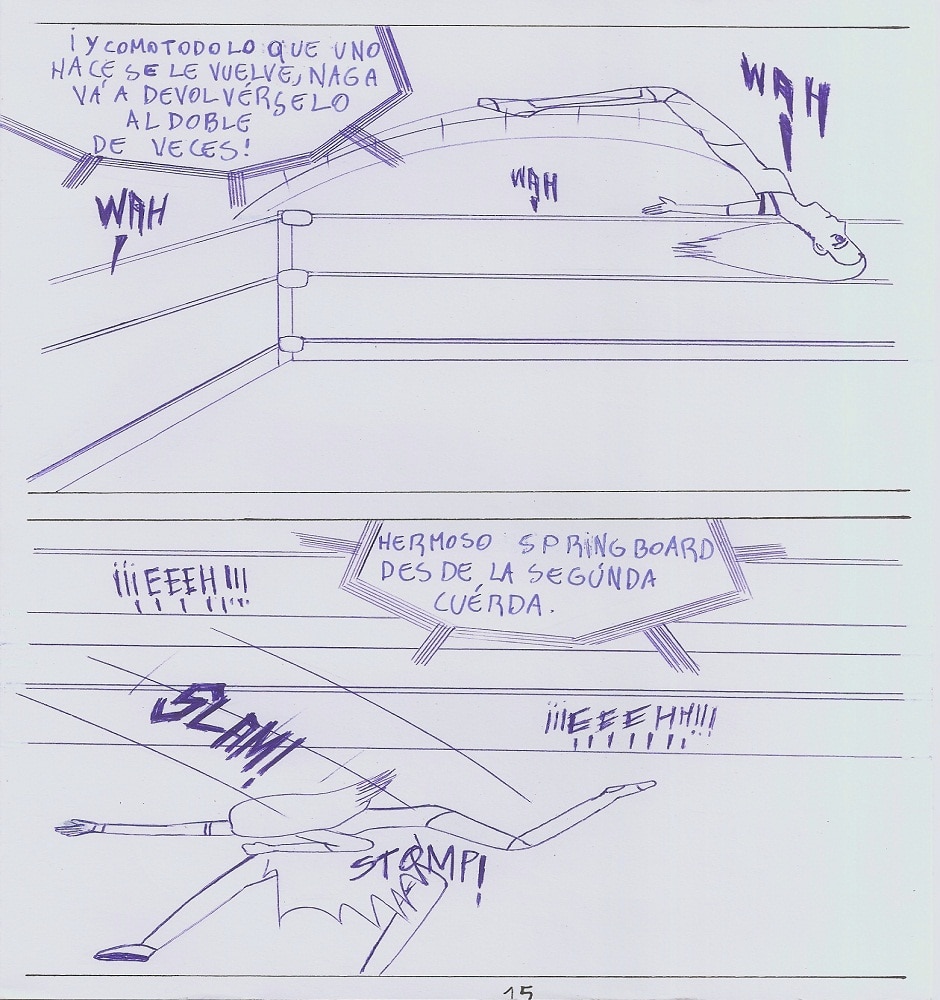 ¡Y COMO TODO LO QUE UNO
HACE SE LE VUELVE, NAGA
VA' A DEVOLVÉRSELO
AL DOBLE
DE VECES!
WAH
WAH
WAH
HERMOSO SPRINGBOARD
DESDE LA SEGÚNDA
CUÉRDA.
¡¡¡EEEH!!!
SLAM!
¡¡¡EEEHH!!!
STOMP!
15